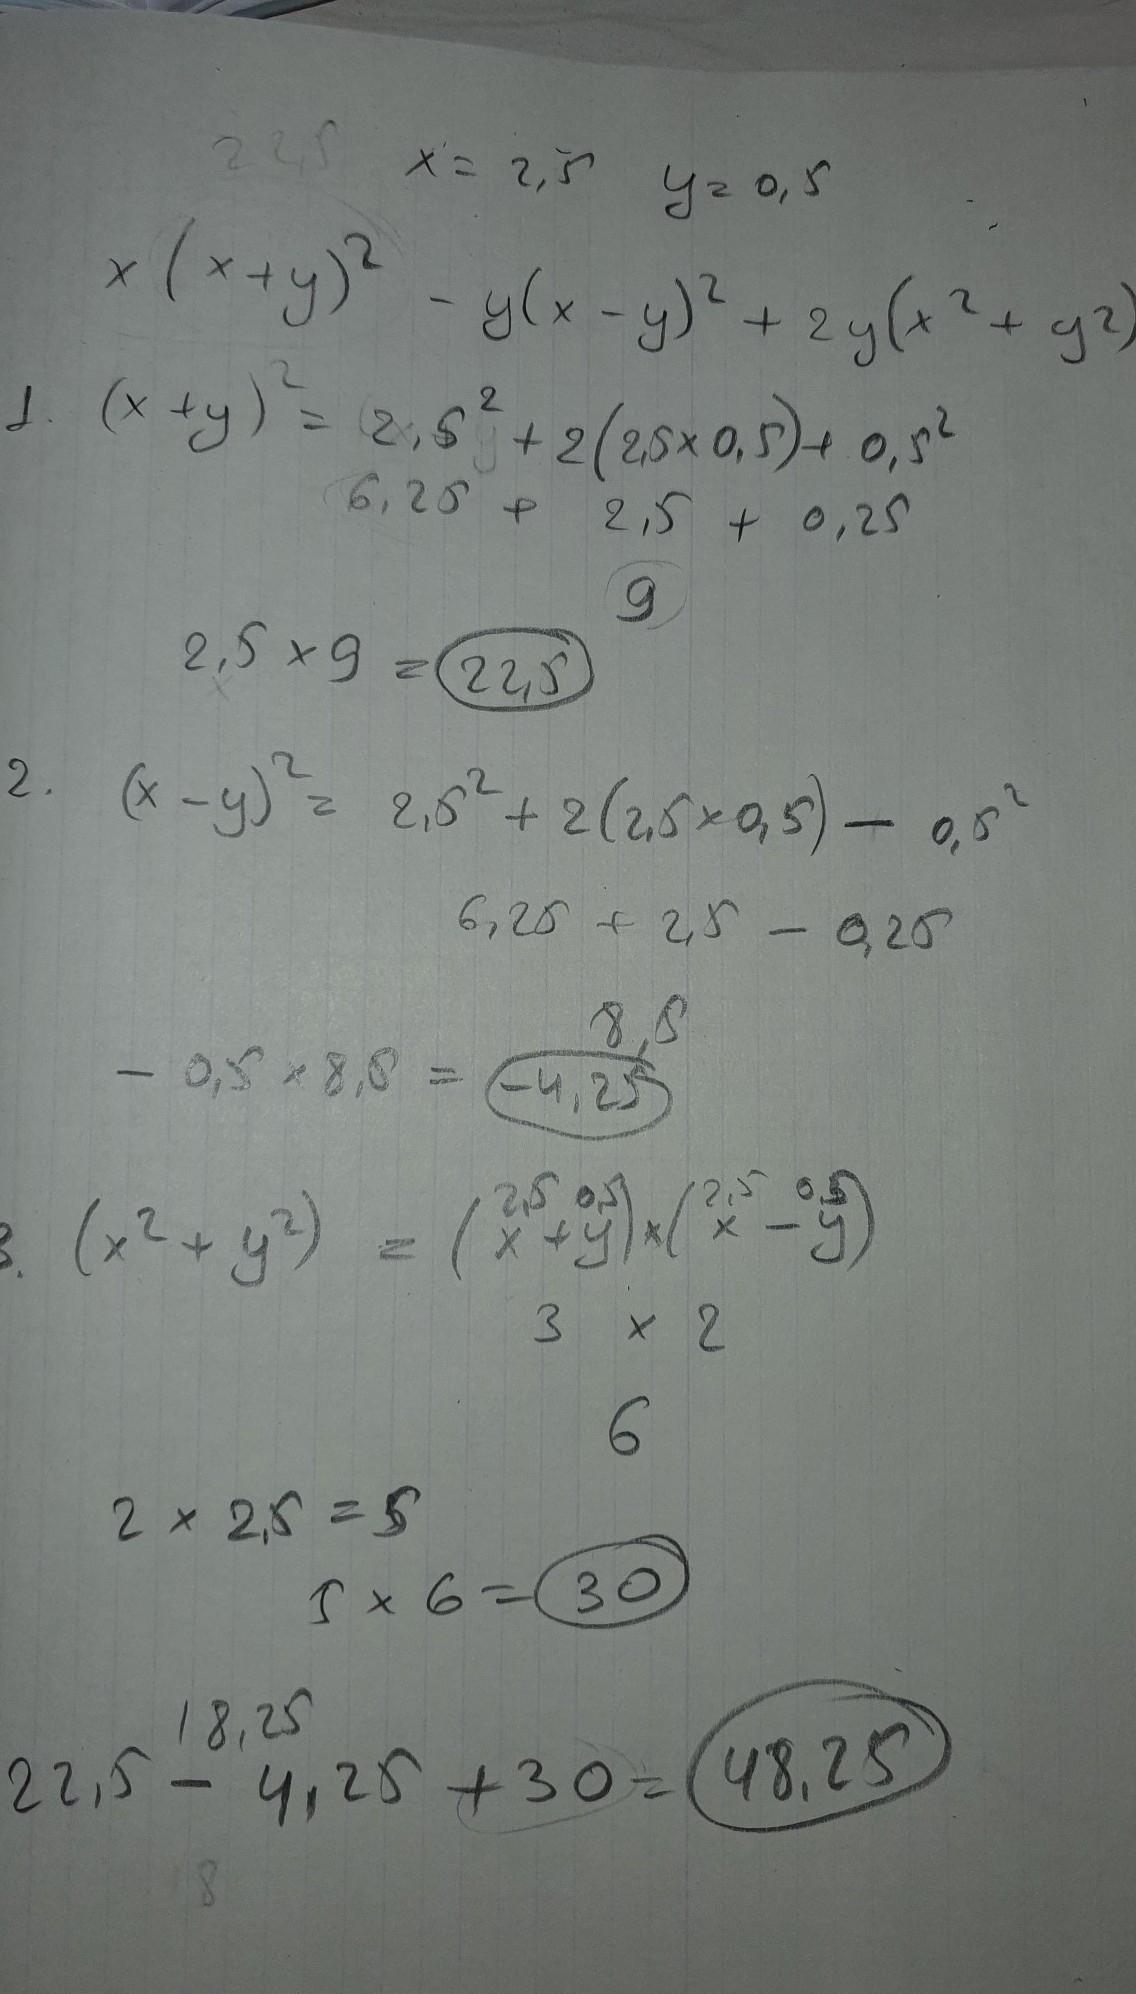 22,5 x = 2,5 y = 0,5
x(x+y)² - y(x-y)² + 2y(x²+y²)
1. (x+y)² = 2,5² + 2(2,5×0,5) + 0,5²
6,25 + 2,5 + 0,25
9
2,5 × 9 = 22,5
2. (x-y)² = 2,5² + 2(2,5×0,5) - 0,5²
6,25 + 2,5 - 0,25
8,5
- 0,5 × 8,5 = -4,25
2,5 0,5 2,5 0,5
3. (x²+y²) = (x+y)×(x-y)
3 × 2
6
2 × 2,5 = 5
5 × 6 = 30
18,25
22,5 - 4,25 + 30 = 48,25
18